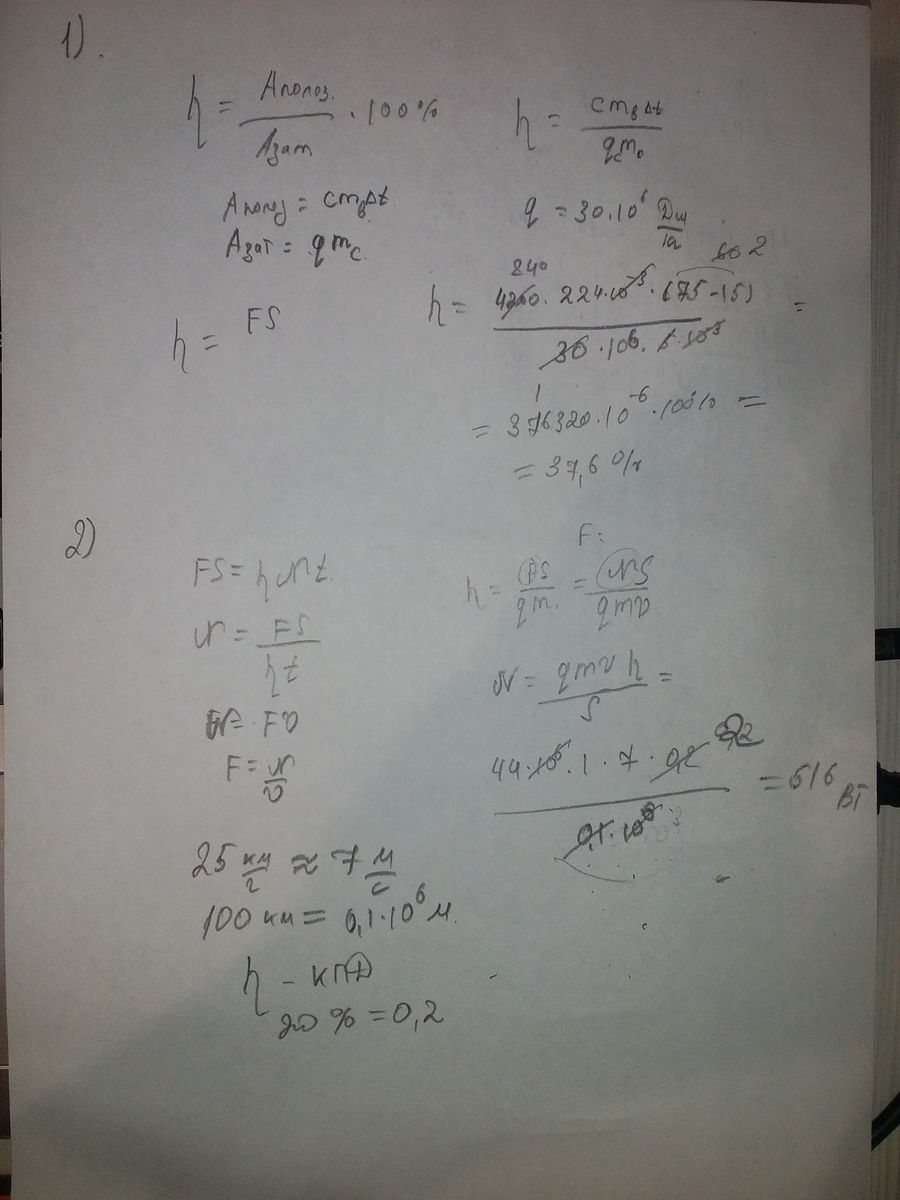 1).
η = Aполез. / Aзат · 100%
Aполез = cmвΔt
Aзат = qmc.
η = FS
η = cmвΔt / qmc
q = 30·10⁶ Дж/кг
840 60 2
η = 4200 · 224·10⁻³ · (75-15) / 30 · 10⁶ · 5·10⁻³ =
1
= 376320·10⁻⁶·100% =
= 37,6 %
2)
FS = ηNt.
N = FS / ηt
N = Fυ
F = N / υ
25 км/г ≈ 7 м/с
100 км = 0,1·10⁶ м.
η - КПД
20 % = 0,2
F =
η = FS / qm. = NS / qmυ
N = qmυη / S =
44·10⁶ · 1 · 7 · 0,2 / 0,1·10⁶ = 616 Вт